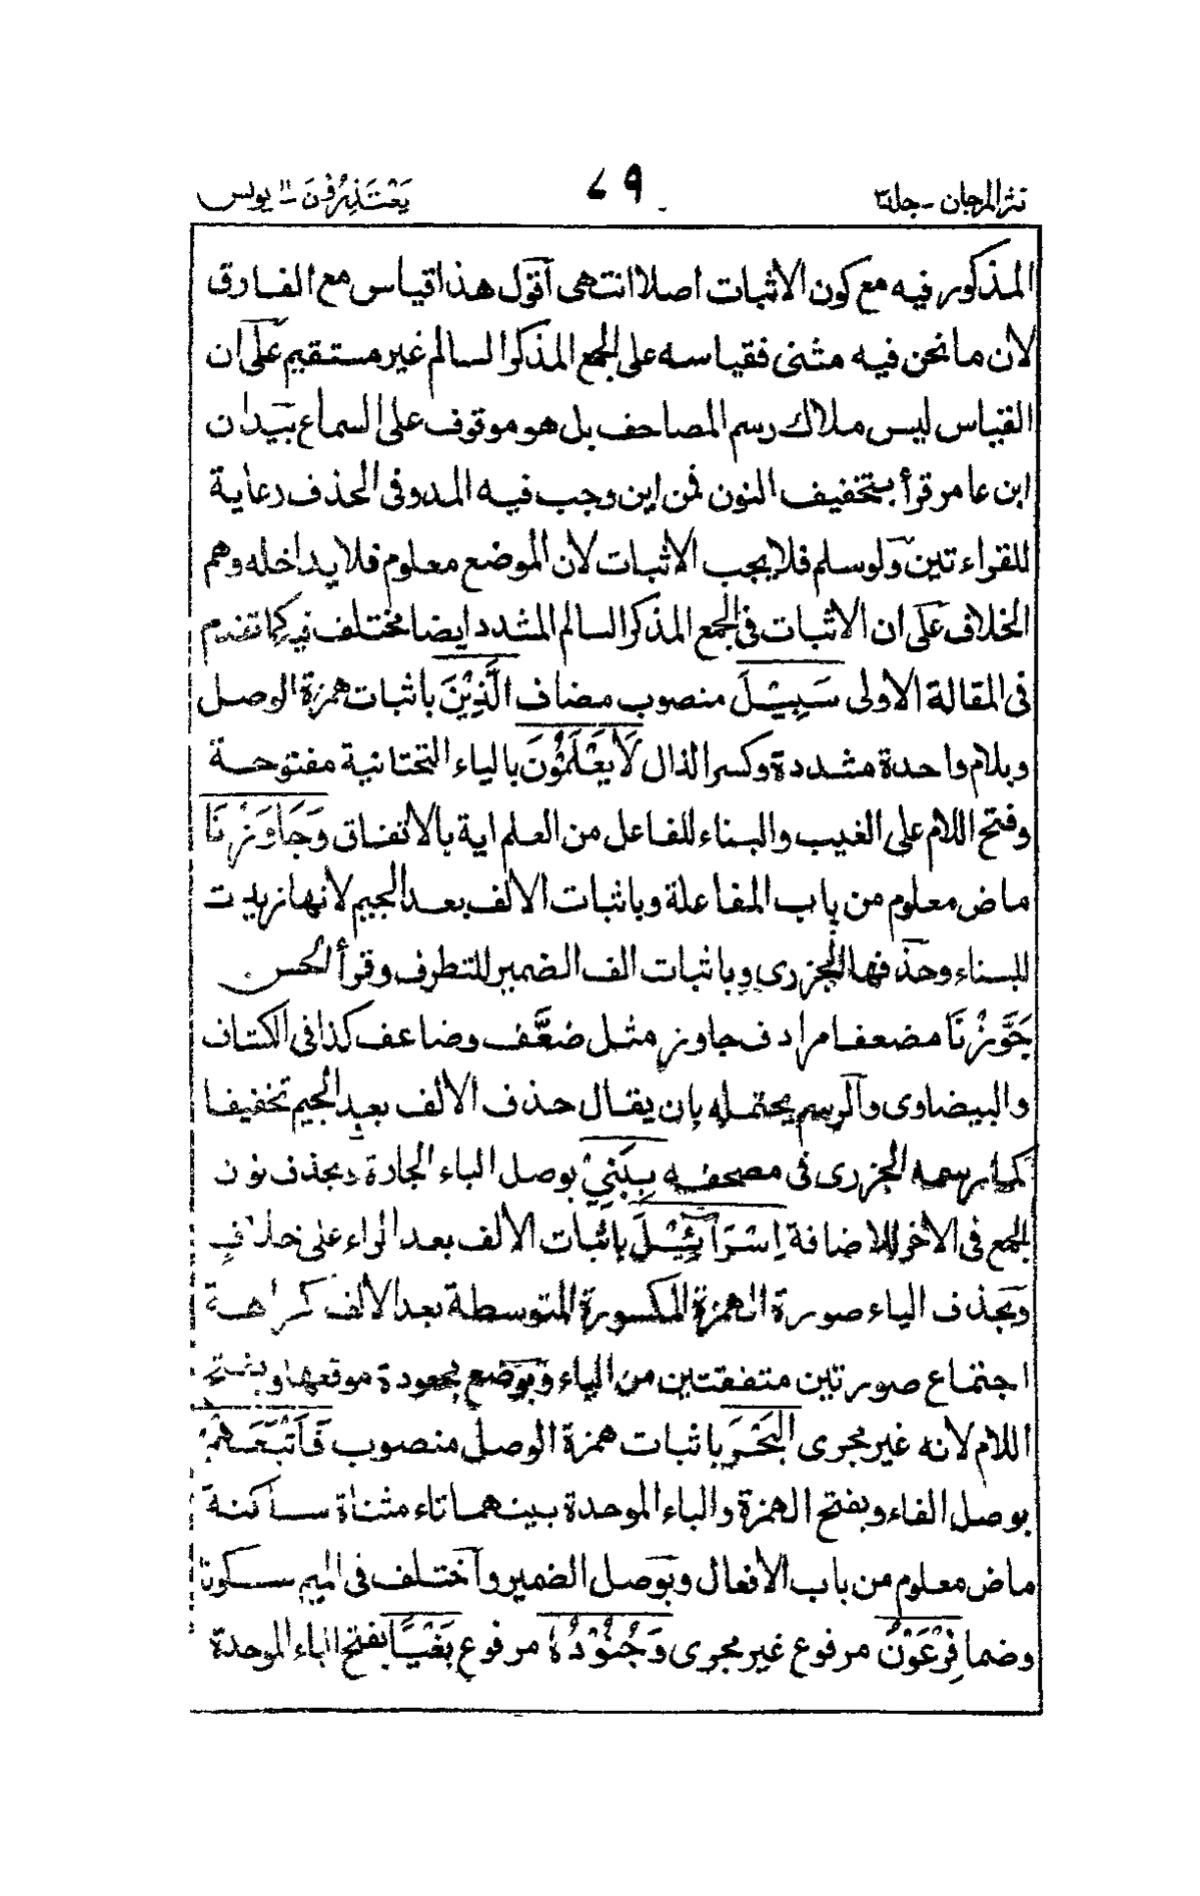 نثر المرجان - جلد ٣
٦٩
يَعْتَذِرُوْنَ ١١ يونس
المذكور فيه مع كون الاثبات اصلا انتهى أقول هذا قياس مع الفارق
لان ما نحن فيه مثنى فقياسه على الجمع المذكر السالم غير مستقيم على ان
القياس ليس ملاك رسم المصاحف بل هو موقوف على السماع بيد ان
ابن عامر قرأ بتخفيف النون فمن اين وجب فيه المد وفى الحذف رعاية
للقراءتين ولو سلم فلا يجب الاثبات لان الموضع معلوم فلا يداخله وهم
الخلاف على ان الاثبات فى الجمع المذكر السالم المشدد ايضا مختلف فيه كما تقدم
فى المقالة الاولى سَبِيْلَ منصوب مضاف الَّذِيْنَ باثبات همزة الوصل
وبلام واحدة مشددة وكسر الذال لَا يَعْلَمُوْنَ بالياء التحتانية مفتوحة
وفتح اللام على الغيب والبناء للفاعل من العلم اية بالاتفاق وَجَاوَزْنَا
ماض معلوم من باب المفاعلة وباثبات الالف بعد الجيم لانها زيدت
للبناء وحذفها الجزرى وباثبات الف الضمير للتطرف وقرأ الحسن
جَوَّزْنَا مضعفا مرادف جاوز مثل ضعَّف وضاعف كذا فى الكشاف
والبيضاوى والرسم يحتمله بان يقال حذف الالف بعد الجيم تخفيفا
كما رسمه الجزرى فى مصحفه بِبَنِيْ بوصل الباء الجارة وبحذف نون
الجمع فى الاخر للاضافة اِسْرَآئِيْلَ باثبات الالف بعد الراء على خلاف
وبحذف الياء صورة الهمزة المكسورة المتوسطة بعد الالف كراهة
اجتماع صورتين متفقتين من الياء وبوضع بجعودة موقعها وبفتح
اللام لانه غير مجرى الْبَحْرَ باثبات همزة الوصل منصوب فَاَتْبَعَهُمْ
بوصل الفاء وبفتح الهمزة والباء الموحدة بينهما تاء مثناة ساكنة
ماض معلوم من باب الافعال وبوصل الضمير واختلف فى الميم سكونا
وضما فِرْعَوْنُ مرفوع غير مجرى وَجُنُوْدُهٗ مرفوع بَغْيًا بفتح الباء الموحدة